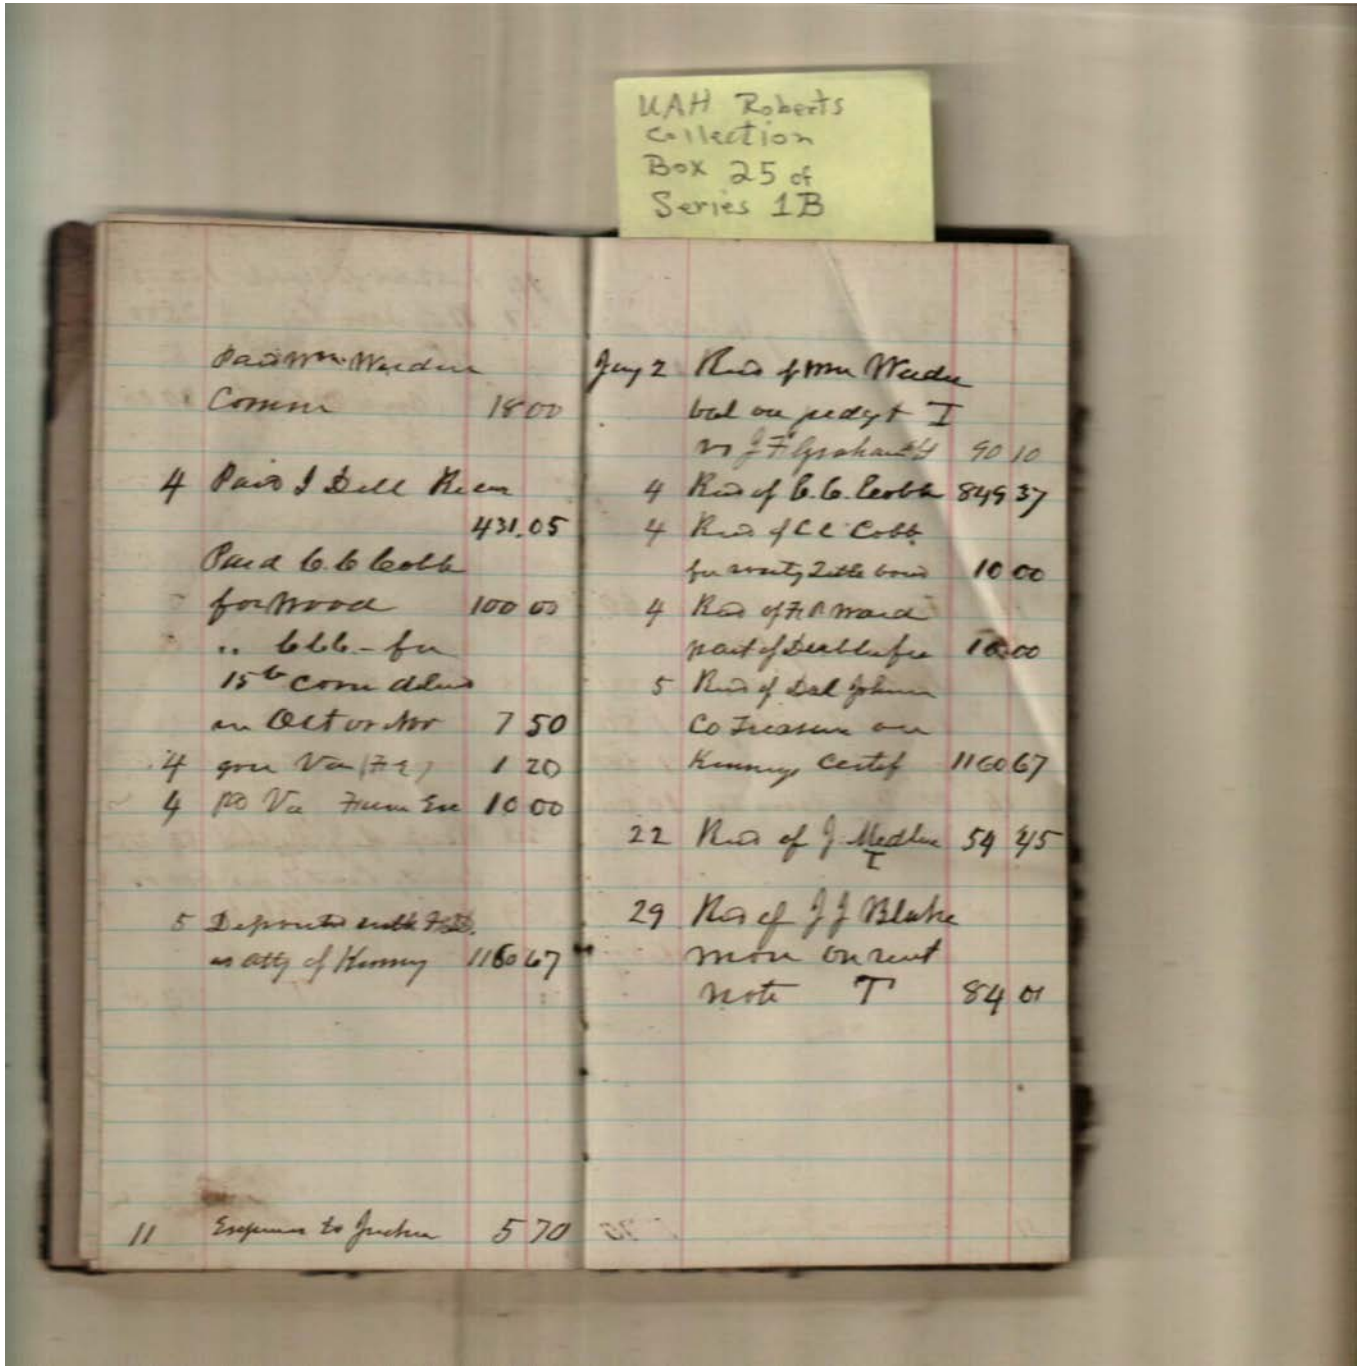 UAH Roberts
Collection
Box 25 of
Series 1B
Paid Wm. Warden
Comm 18 00
4 Paid J Dell
431.05
Paid C. C. Cobb
for wood 100 00
" C C C. - for
15 Corn
in Oct or Nov 7 50
4 Va 1 20
4 Va 10 00
5 Deposited with
as atty of Kinney 1160 67
11 Expenses to 5 70
Jany 2 Recd of Wm
bal on judgt I
vs J F Graham 90 10
4 Recd of C. C. Cobb 849 37
4 Recd of C C Cobb
for Title bond 10 00
4 Recd of Ward
part of fee 10 00
5 Recd of Johnson
Co Treasurer on
Kinneys Certif 1160 67
22 Recd of J. Medlin 54 45
I
29 Recd of J J Blake
more on rent
note T 84 01